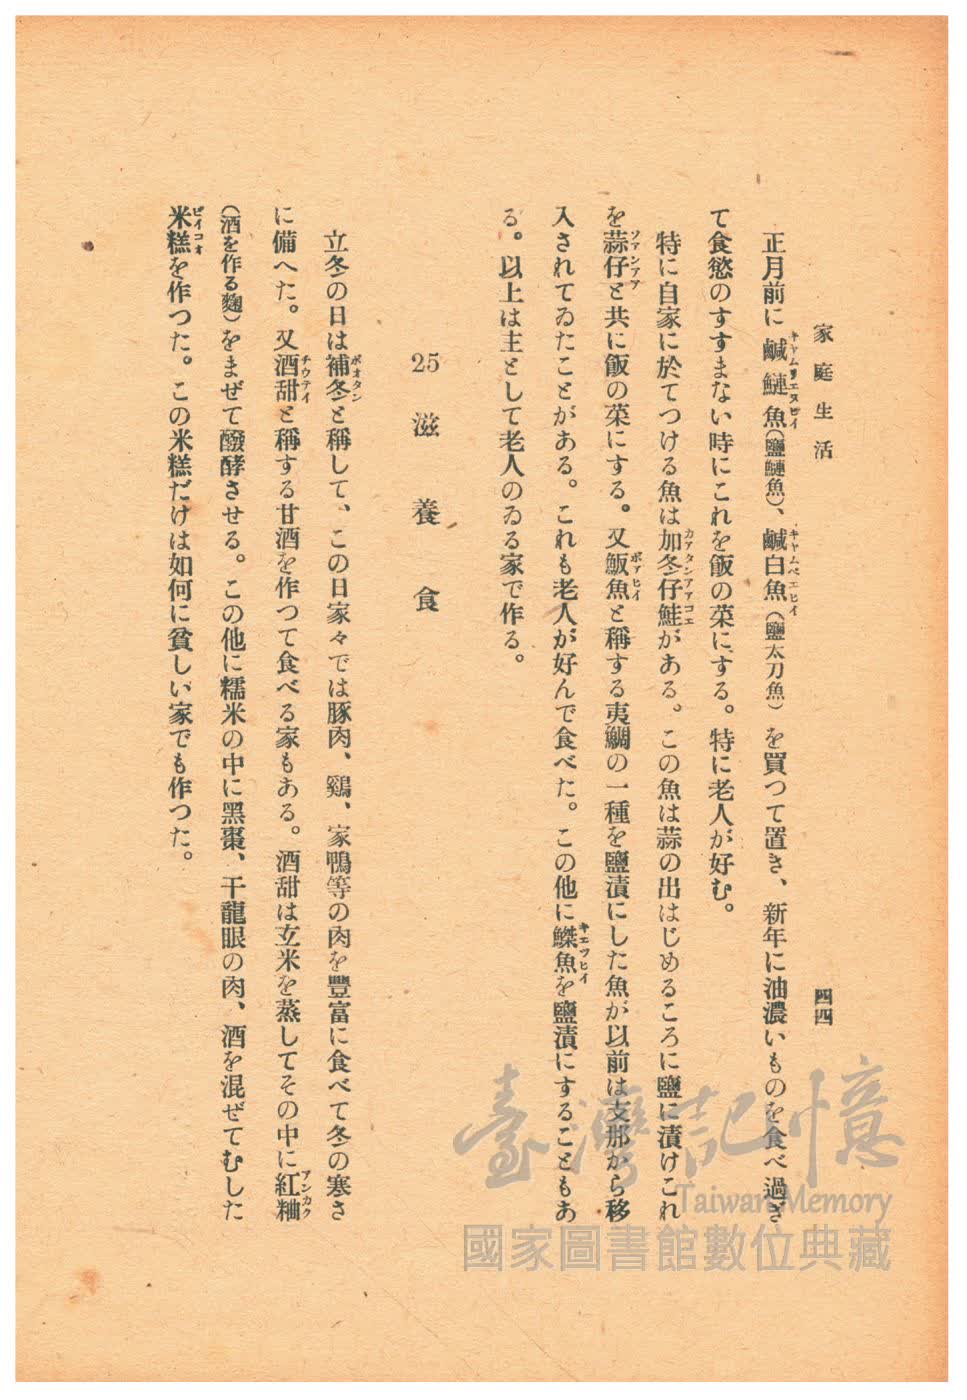 家庭生活
四四
正月前に鹹鰱魚（鹽鰱魚）、鹹白魚（鹽太刀魚）を買つて置き、新年に油濃いものを食べ過ぎ
キヤムリエヌヒイ
キヤムペエヒイ
て食慾のすすまない時にこれを飯の菜にする。特に老人が好む。
特に自家に於てつける魚は加冬仔鮭がある。この魚は蒜の出はじめるころに鹽に漬けこれ
カアタンアアコエ
を蒜仔と共に飯の菜にする。又魬魚と稱する夷鯛の一種を鹽漬にした魚が以前は支那から移
ソアンアア
ボアヒイ
入されてゐたことがある。これも老人が好んで食べた。この他に鰶魚を鹽漬にすることもあ
キエツヒイ
る。以上は主として老人のゐる家で作る。
25 滋養食
立冬の日は補冬と稱して、この日家々では豚肉、鷄、家鴨等の肉を豐富に食べて冬の寒さ
ポオタン
に備へた。又酒甜と稱する甘酒を作つて食べる家もある。酒甜は玄米を蒸してその中に紅粬
チウテイ
アンカク
（酒を作る麴）をまぜて醱酵させる。この他に糯米の中に黑棗、干龍眼の肉、酒を混ぜてむした
米糕を作つた。この米糕だけは如何に貧しい家でも作つた。
ビイコオ
臺灣記憶
Taiwan Memory
國家圖書館數位典藏